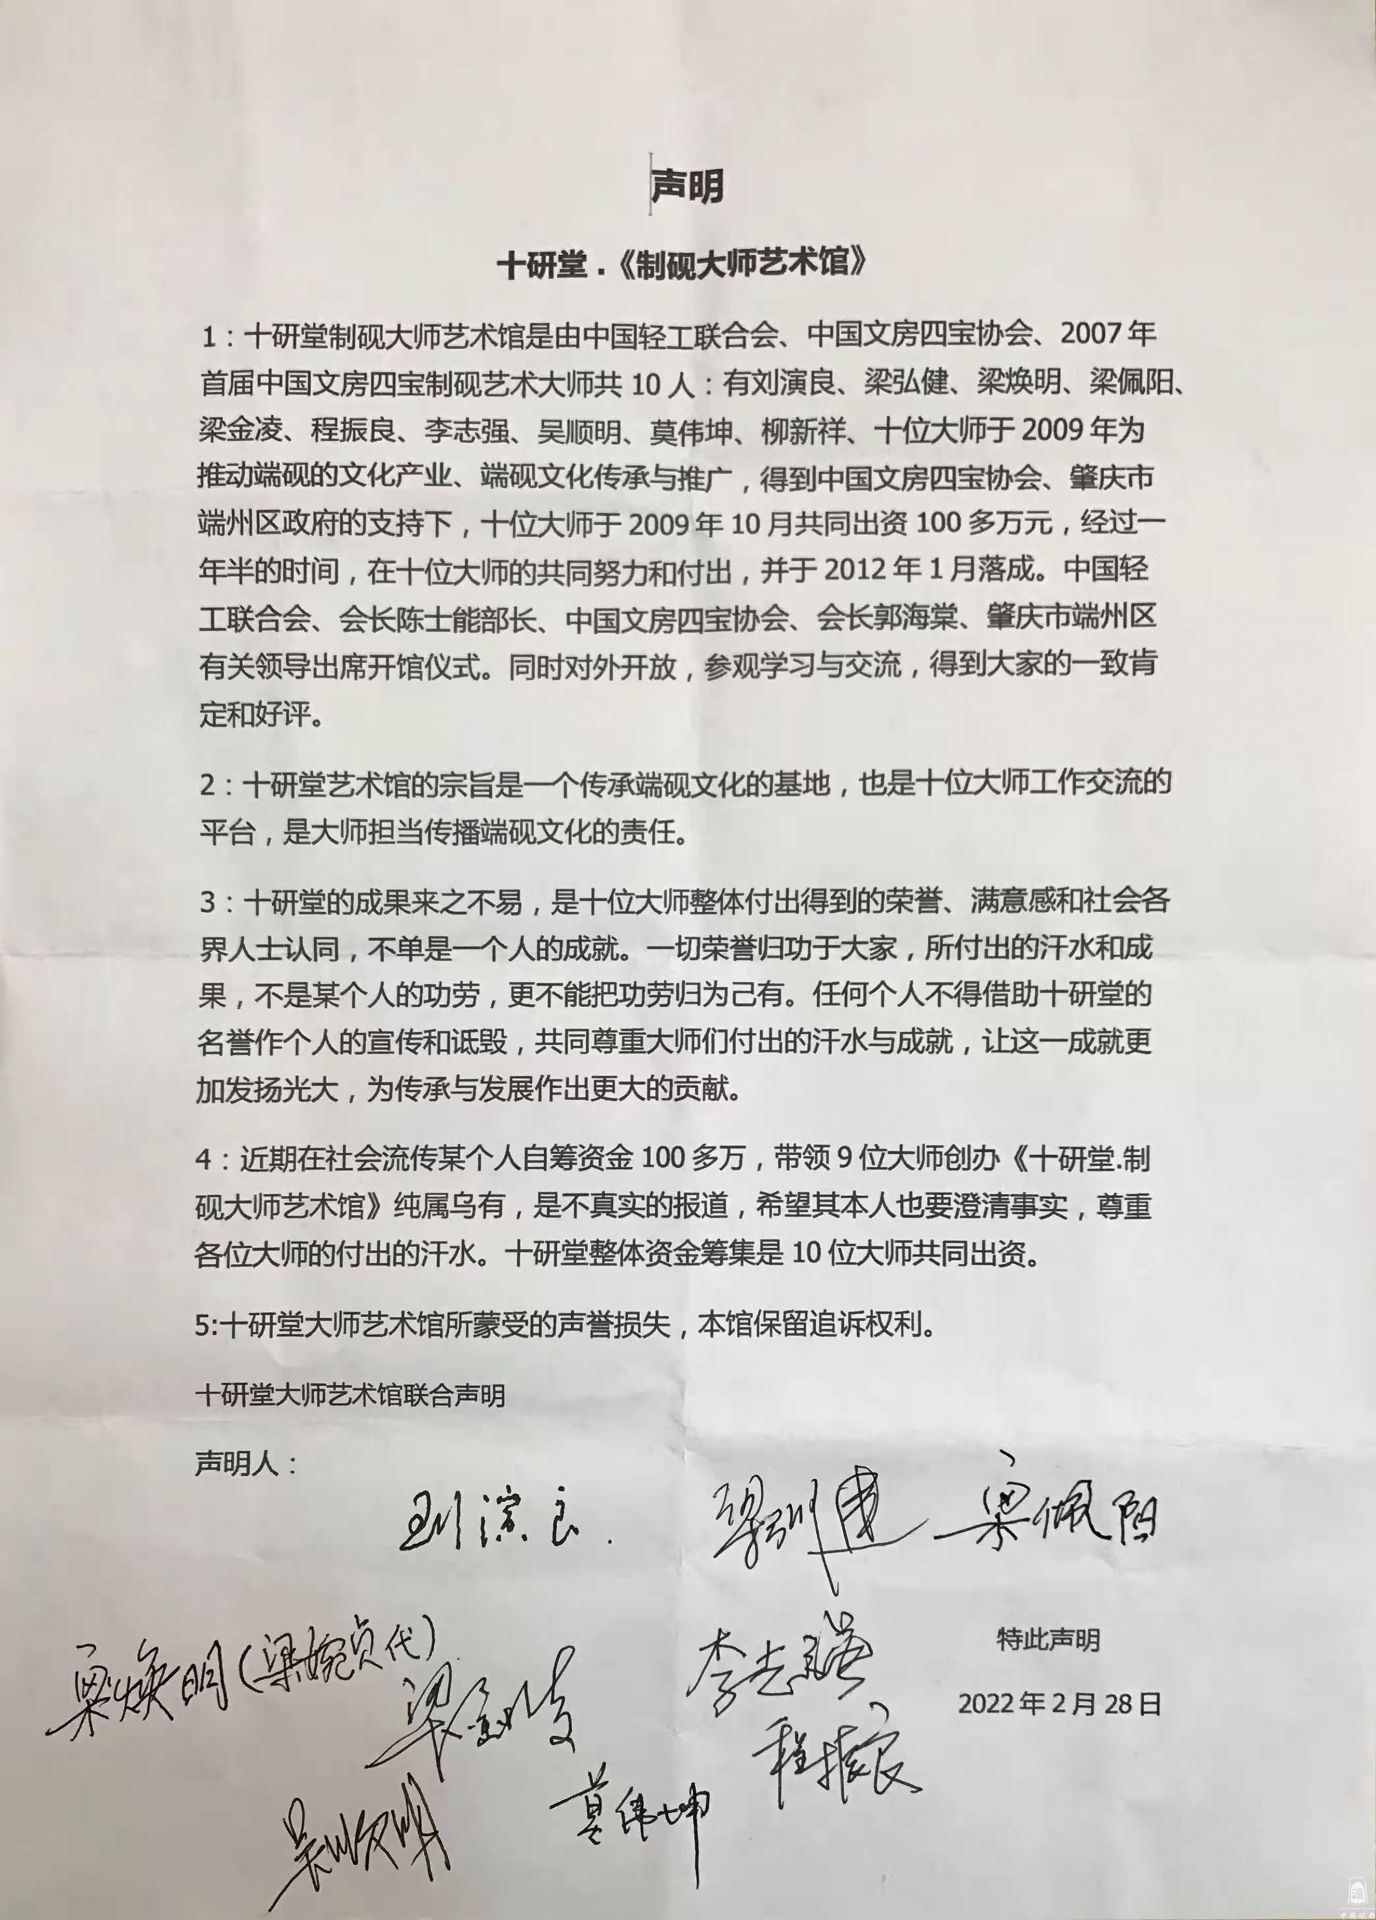 声明
十研堂.《制砚大师艺术馆》
1：十研堂制砚大师艺术馆是由中国轻工联合会、中国文房四宝协会、2007年
首届中国文房四宝制砚艺术大师共10人：有刘演良、梁弘健、梁焕明、梁佩阳、
梁金凌、程振良、李志强、吴顺明、莫伟坤、柳新祥、十位大师于2009年为
推动端砚的文化产业、端砚文化传承与推广，得到中国文房四宝协会、肇庆市
端州区政府的支持下，十位大师于2009年10月共同出资100多万元，经过一
年半的时间，在十位大师的共同努力和付出，并于2012年1月落成。中国轻
工联合会、会长陈士能部长、中国文房四宝协会、会长郭海棠、肇庆市端州区
有关领导出席开馆仪式。同时对外开放，参观学习与交流，得到大家的一致肯
定和好评。
2：十研堂艺术馆的宗旨是一个传承端砚文化的基地，也是十位大师工作交流的
平台，是大师担当传播端砚文化的责任。
3：十研堂的成果来之不易，是十位大师整体付出得到的荣誉、满意感和社会各
界人士认同，不单是一个人的成就。一切荣誉归功于大家，所付出的汗水和成
果，不是某个人的功劳，更不能把功劳归为己有。任何个人不得借助十研堂的
名誉作个人的宣传和诋毁，共同尊重大师们付出的汗水与成就，让这一成就更
加发扬光大，为传承与发展作出更大的贡献。
4：近期在社会流传某个人自筹资金100多万，带领9位大师创办《十研堂.制
砚大师艺术馆》纯属乌有，是不真实的报道，希望其本人也要澄清事实，尊重
各位大师的付出的汗水。十研堂整体资金筹集是10位大师共同出资。
5:十研堂大师艺术馆所蒙受的声誉损失，本馆保留追诉权利。
十研堂大师艺术馆联合声明
声明人：
刘演良 梁弘健 梁佩阳
梁焕明(梁婉贞代) 梁金凌 李志强 特此声明
程振良 2022年2月28日
吴顺明 莫伟坤